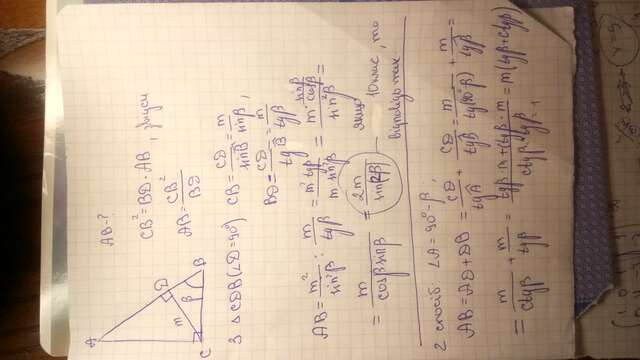 A
D
m
β
C
B
AB-?
CB² = BD · AB, звідси
AB = CB²/BD
З ΔCDB (∠D=90°) CB = CD/sinβ = m/sinβ,
BD = CD/tgβ = m/tgβ
AB = m²/sin²β : m/tgβ = m² tgβ/m sin²β = m · sinβ/cosβ / sin²β =
= m/cosβ sinβ = 2m/sin2β якщо 10 клас, то
відповідь така.
2 спосіб ∠A = 90°-β,
AB = AD + DB = CD/tgA + CD/tgβ = m/tg(90°-β) + m/tgβ =
= m/ctgβ + m/tgβ = tgβ·m + ctgβ·m/ctgβ·tgβ = m(tgβ+ctgβ)
1